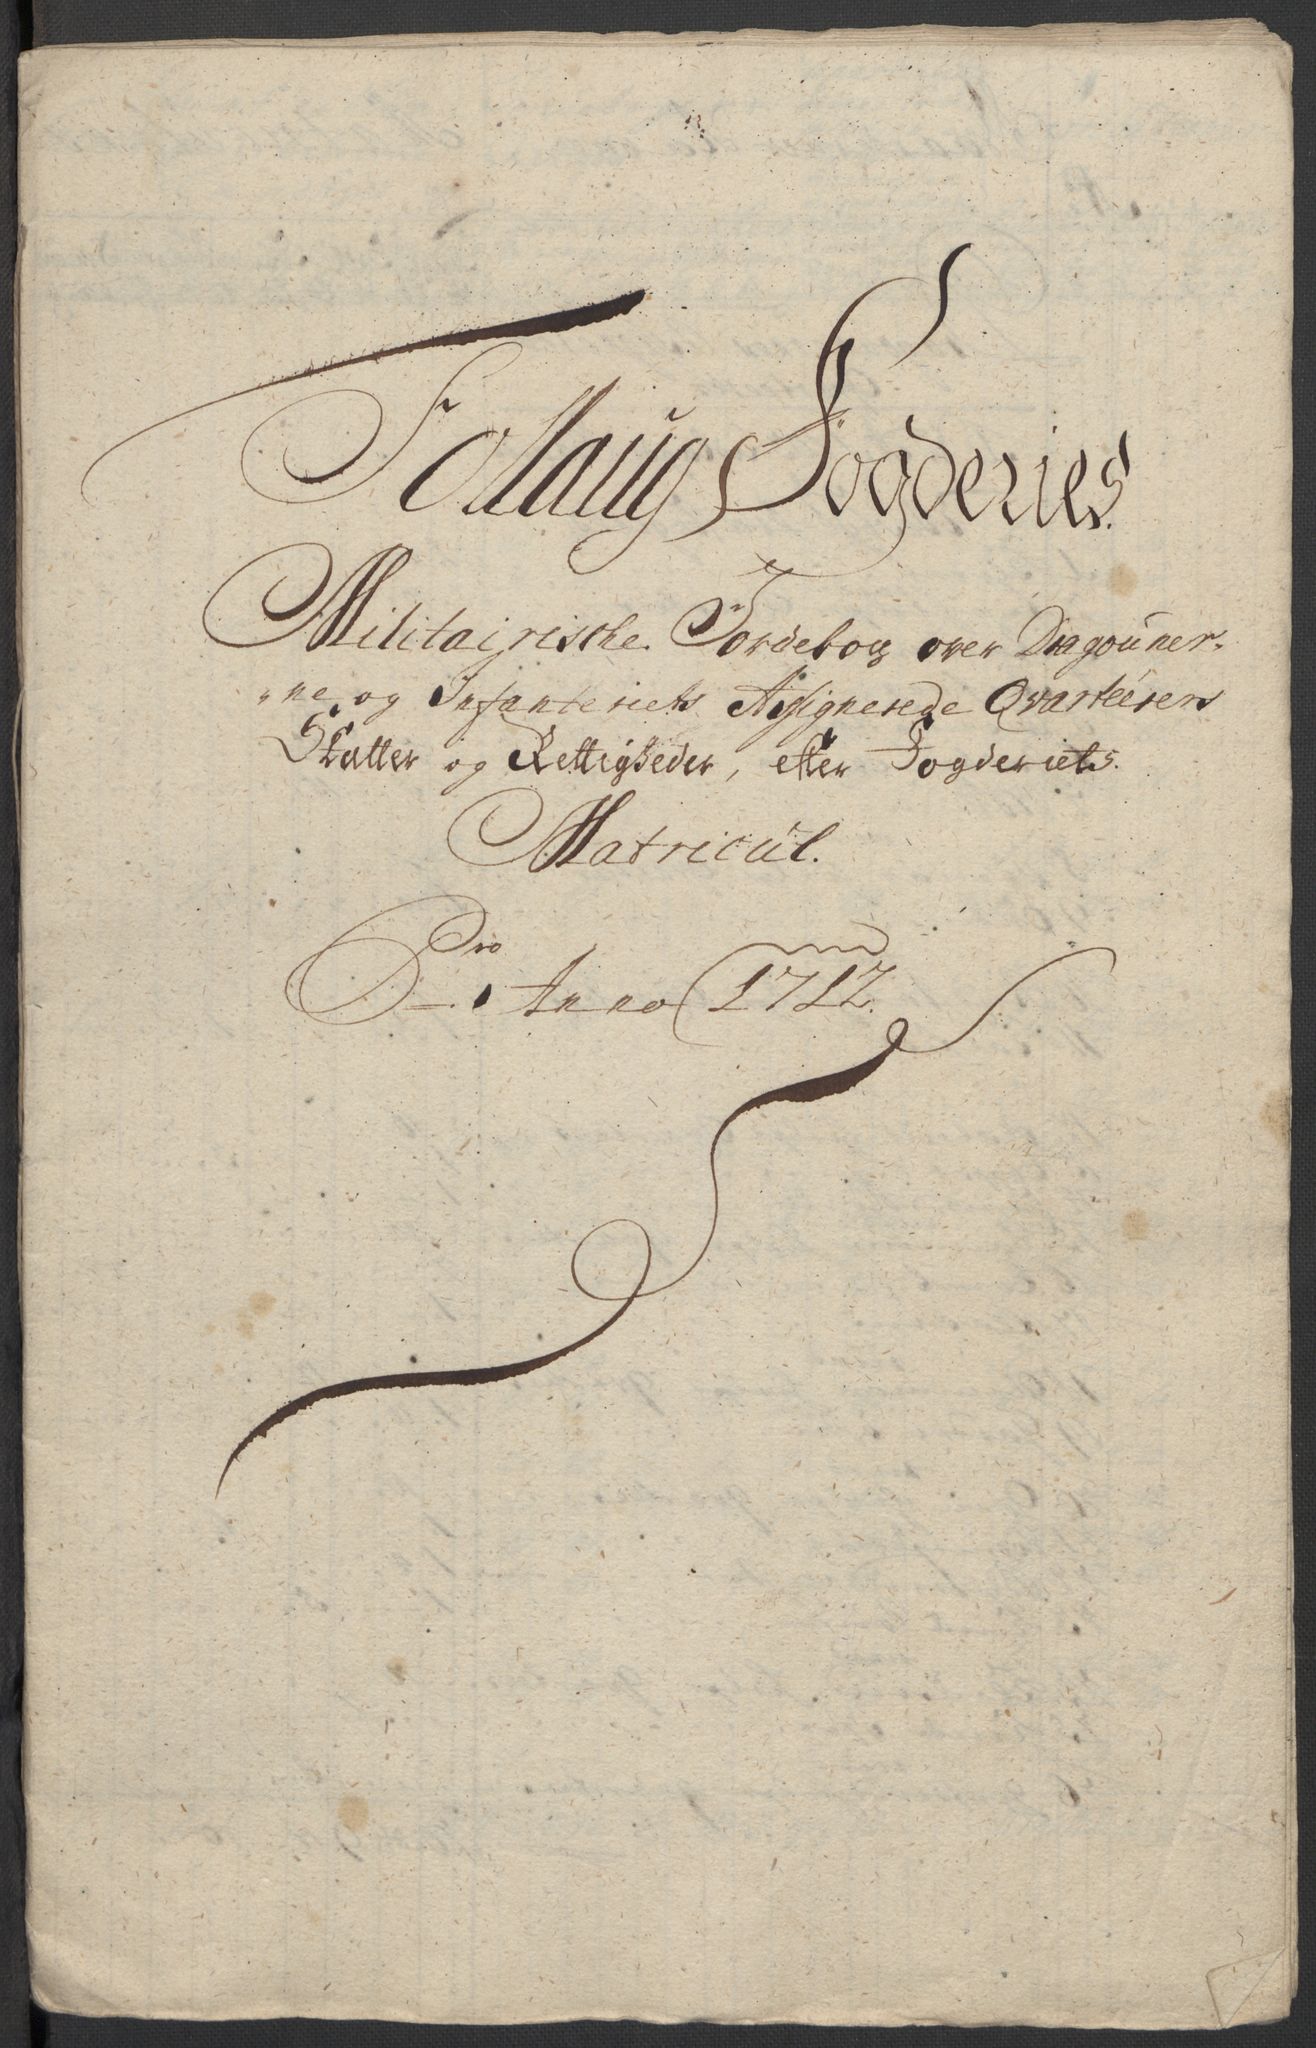 Follaug Fogderies
Militairische Jordebog over Dragouner-
ne og Infanteriets Assignerede Qvarteerers
Skatter og Rettigheder, efter Fogderiets
Matricul.
Pro Anno 1712.